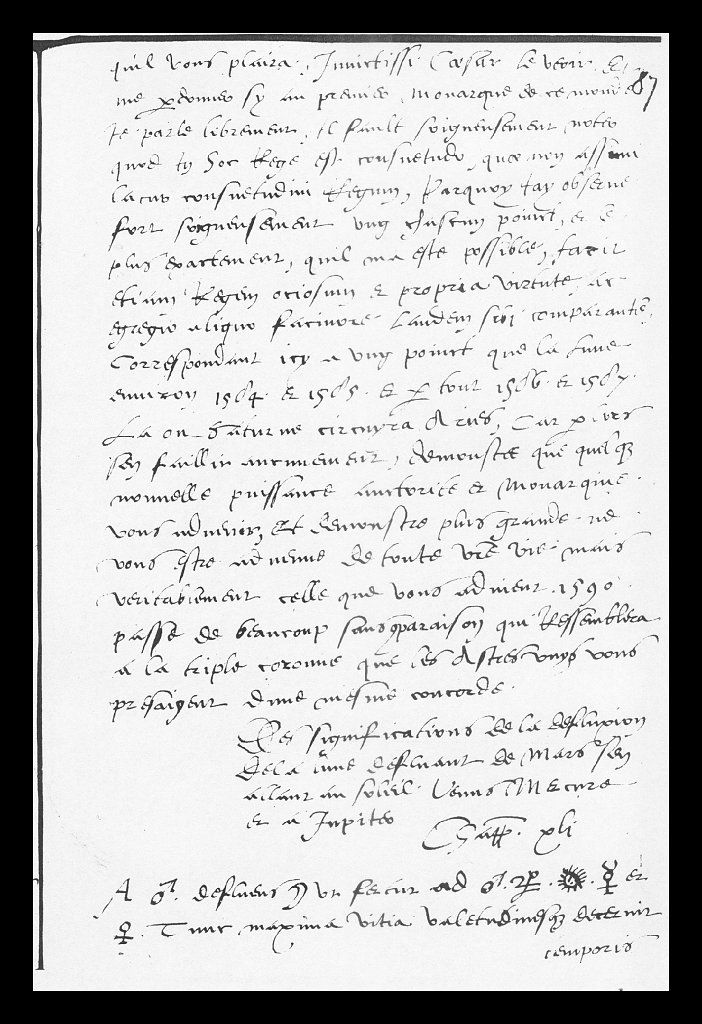 quil vous plaira. Invictissi Cæsar le veoir. Et
me perdonner sy au premier Monarque de ce monde
87
Je parle librement. Il fault soigneusement noter
quod in hoc Rege est consuetudo, quæ non assimi
lacur consuetudini Regum, Parquoy iay observe
fort soigneusement ung chascun poinct, et le
plus exactement, quil ma este possible, facit
etiam Regem ociosum et propria virtute, ac
egregio aliquo facinore Laudem sibi comparantē,
Correspondant icy a ung poinct que la Lune
environ 1584. et 1585. et p tout 1586. et 1587.
La ou Saturne circuyra Aries, Car p lors
sen faillir aucunement, demonstre que quelq
nouvelle puissance auctorite et Monarquie
vous advenir, Et demonstre plus grande ne
vous estre advenue de toute vrē vie mais
veritablement celle que vous advient. 1590.
passe de beaucoup sans cparaison qui Ressemblera
a la triple coronne que les Astres unys vous
presaigent dune mesme concorde.
Des significations de la defluxion
de la lune defluant de Mars sen
allant au soleil Venus Mercure
et a Jupiter
Chapp. xli
A ♂. defluens ☽ ut fertur ad ♂. ♃. ☉. ☿ et
♀. Tunc maxima vitia valetudinesq decernit
temporis